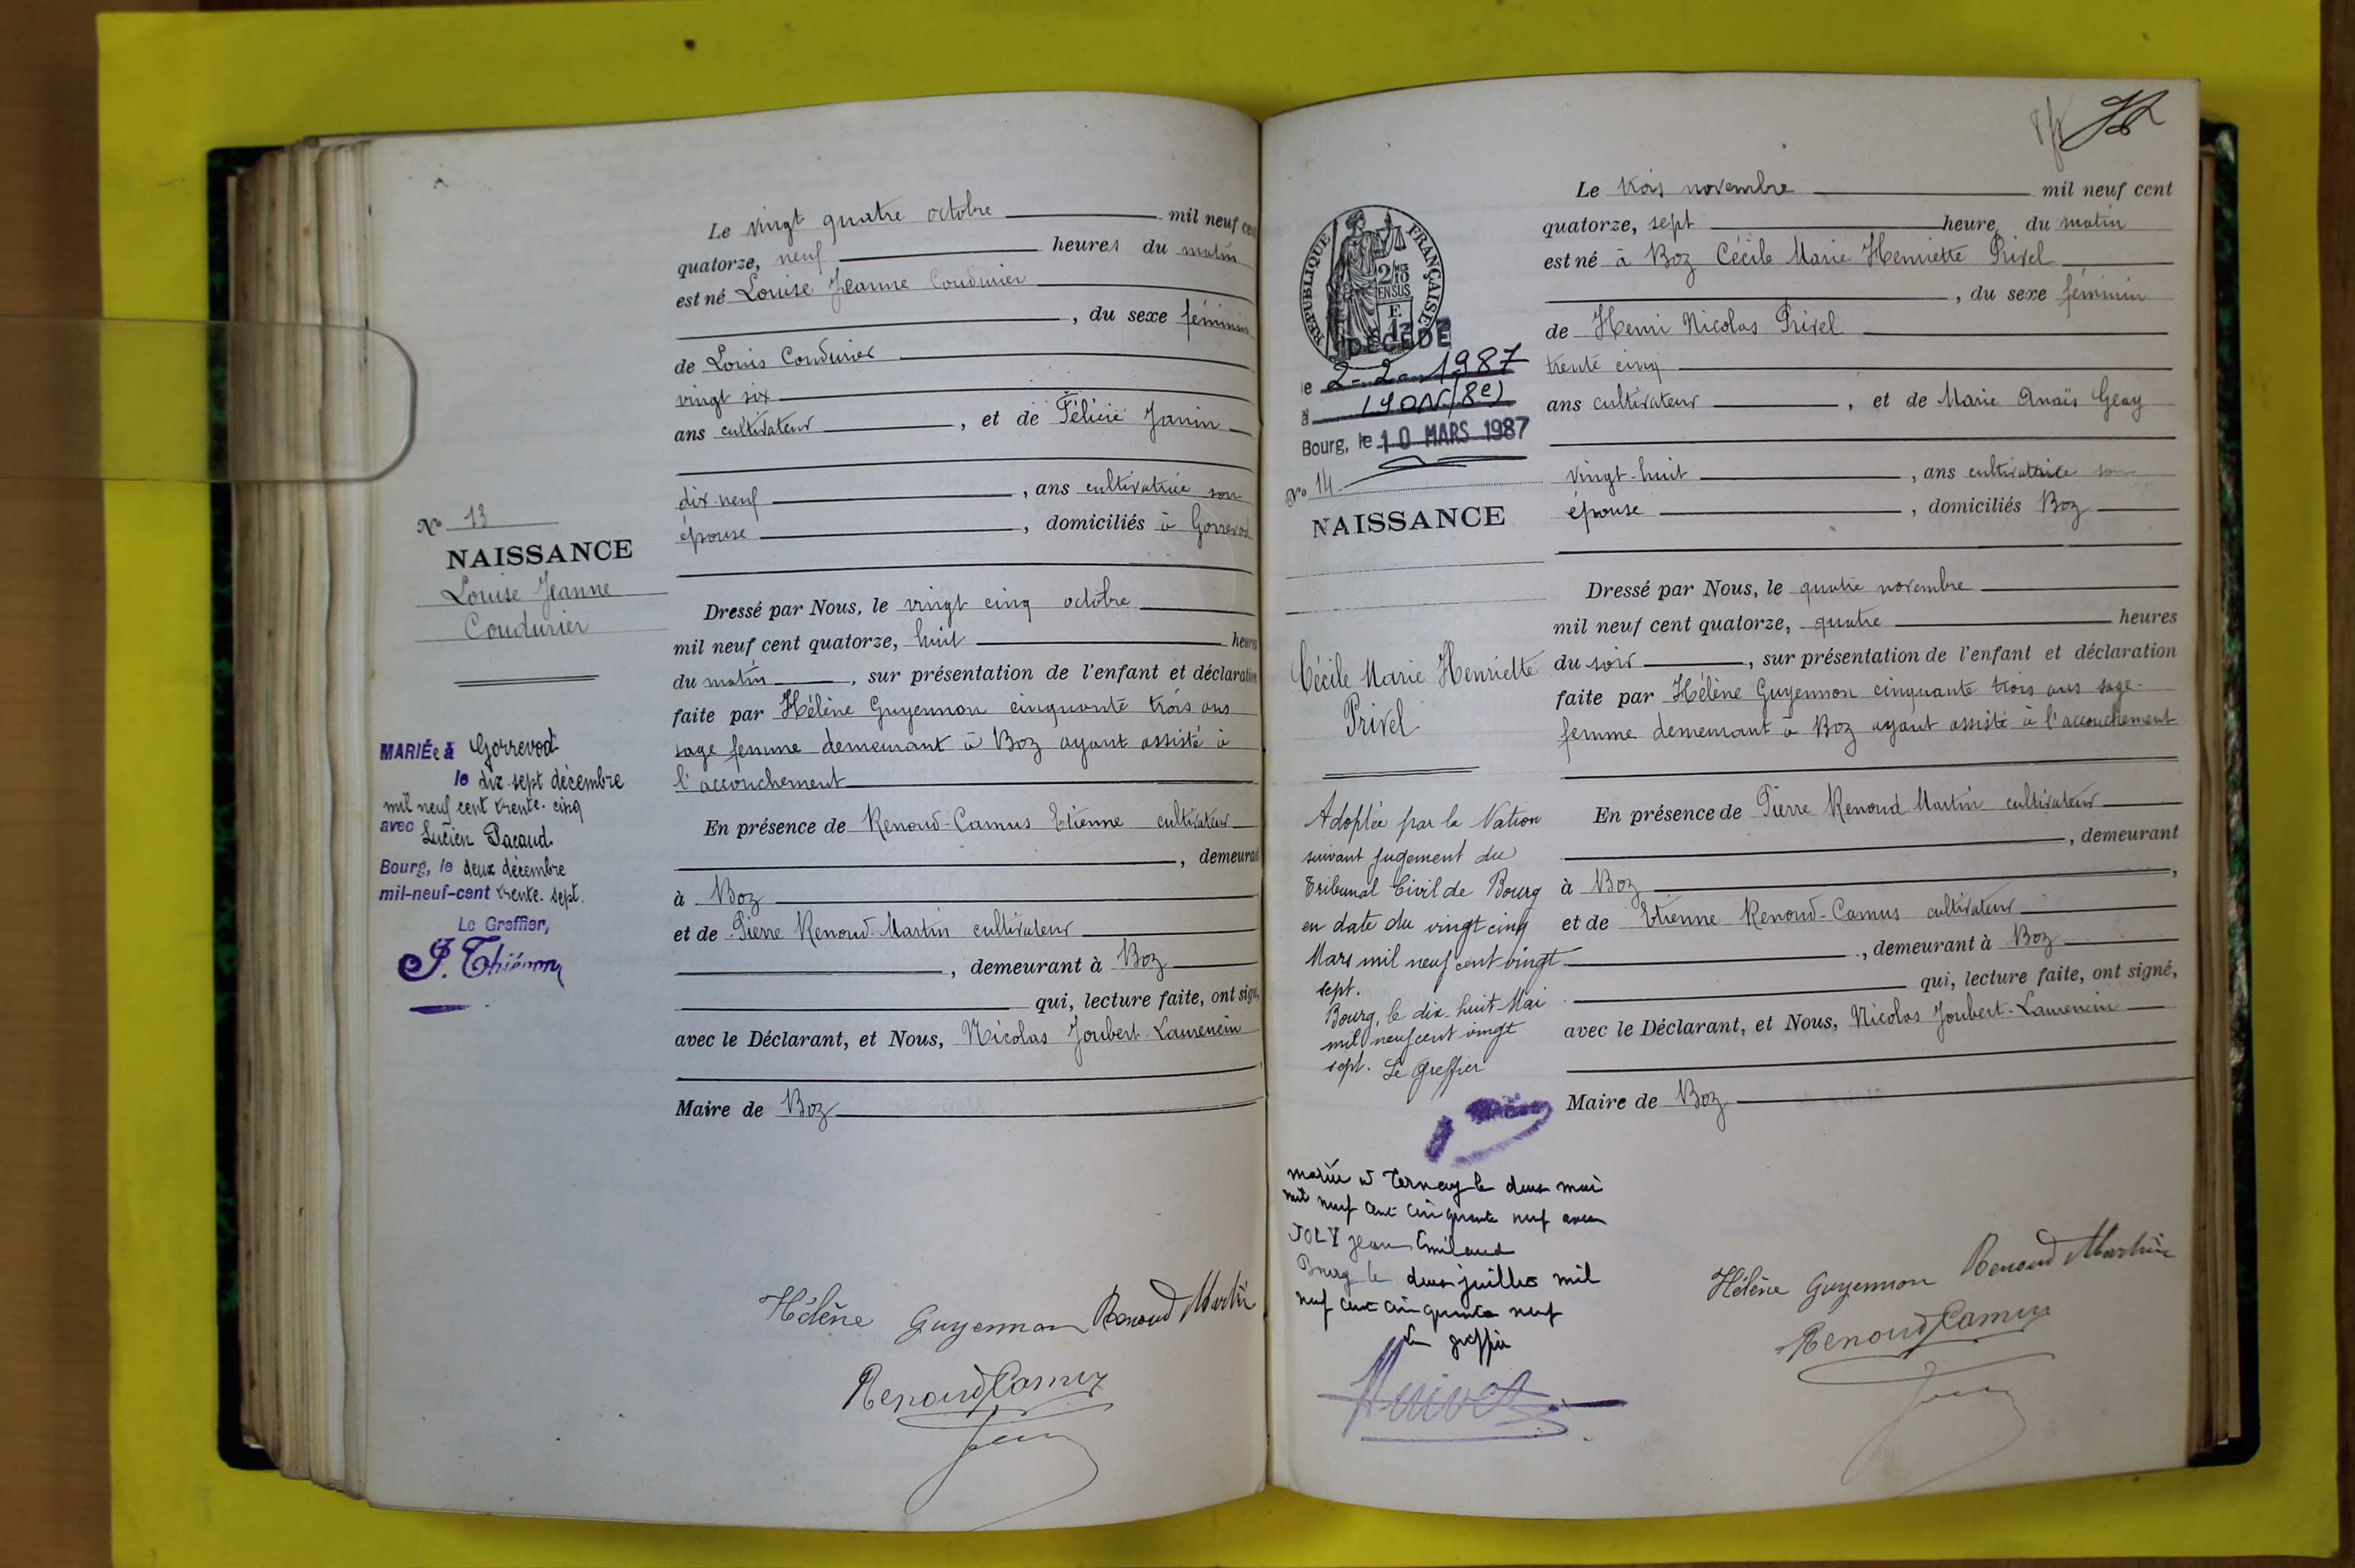 Le vingt quatre octobre mil neuf cent
quatorze, neuf heures du matin
est né Louise Jeanne Coudurier
, du sexe féminin
de Louis Coudurier
vingt six
ans cultivateur, et de Félicie Janin
dix-neuf, ans cultivatrice son
épouse, domiciliés à Gorrevod
Nº 13
NAISSANCE
Louise Jeanne
Coudurier
Dressé par Nous, le vingt cinq octobre
mil neuf cent quatorze, huit heures
du matin, sur présentation de l'enfant et déclaration
faite par Hélène Guyennon cinquante trois ans
sage femme demeurant à Boz ayant assisté à
l'accouchement
En présence de Renoud-Camus Etienne cultivateur
, demeurant
à Boz
et de Pierre Renoud-Martin cultivateur
, demeurant à Boz
qui, lecture faite, ont signé,
avec le Déclarant, et Nous, Nicolas Joubert-Laurencin
Maire de Boz
MARIÉe à Gorrevod
le dix-sept décembre
mil neuf cent trente-cinq
avec Lucien Pacaud.
Bourg, le deux décembre
mil-neuf-cent trente-sept.
Le Greffier,
J. Thiénon
Hélène Guyennon Renoud Martin
Renoud Camus
RÉPUBLIQUE FRANÇAISE
2 MES 10 EN SUS
DÉCÉDÉ
le 2-2-1987
à LYON (8e)
Bourg, le 10 MARS 1987
Nº 14
NAISSANCE
Cécile Marie Henriette
Privel
Adoptée par la Nation
suivant jugement du
Tribunal Civil de Bourg
en date du vingt cinq
Mars mil neuf cent vingt
sept.
Bourg, le dix-huit Mai
mil neuf cent vingt
sept. Le Greffier
mariée à Ternay le deux mai
mil neuf cent cinquante neuf avec
JOLY Jean Emiland
Bourg le deux juillet mil
neuf cent cinquante neuf
Le greffier
Le trois novembre mil neuf cent
quatorze, sept heure du matin
est né à Boz Cécile Marie Henriette Privel
, du sexe féminin
de Henri Nicolas Privel
trente cinq
ans cultivateur, et de Marie Anaïs Geay
vingt-huit, ans cultivatrice son
épouse, domiciliés Boz
Dressé par Nous, le quatre novembre
mil neuf cent quatorze, quatre heures
du soir, sur présentation de l'enfant et déclaration
faite par Hélène Guyennon cinquante trois ans sage-
femme demeurant à Boz ayant assisté à l'accouchement
En présence de Pierre Renoud Martin cultivateur
, demeurant
à Boz,
et de Etienne Renoud-Camus cultivateur
, demeurant à Boz
qui, lecture faite, ont signé,
avec le Déclarant, et Nous, Nicolas Joubert-Laurencin
Maire de Boz
Hélène Guyennon Renoud Martin
Renoud Camus